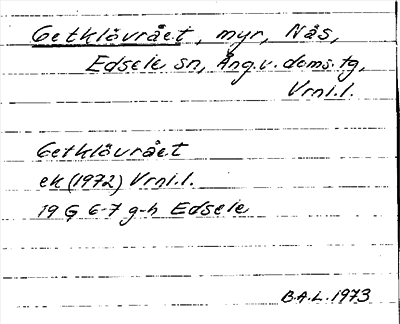 Getklövrået, myr, Nås,
Edsele sn, Ång.v. doms. tg,
Vrnl.l.
Getklövrået
ek (1972) Vrnl.l.
19 G 6-7 g-h Edsele
B.A.L. 1973